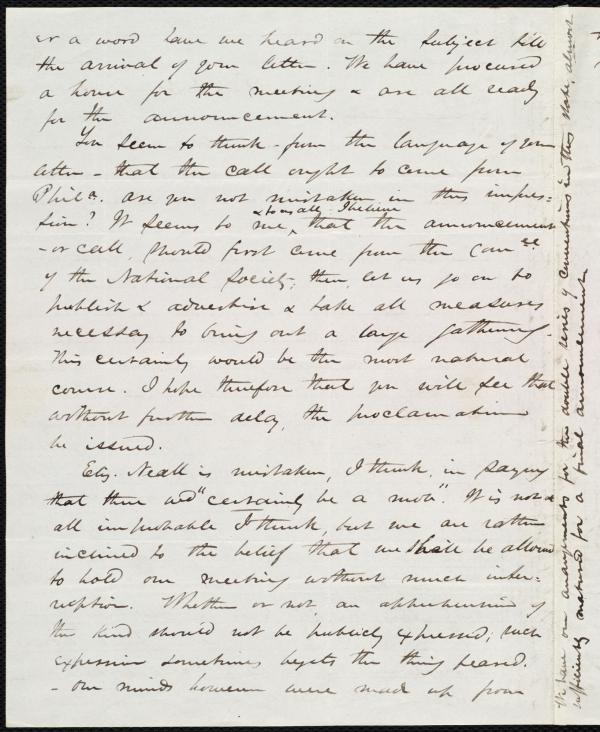 or a word have we heard on the subject till
the arrival of your letter. We have procured
a house for the meeting & are all ready
for the announcement.
You seem to think - from the language of your
letter - that the call ought to come from
Phila. are you not mistaken in this impres=
sion? It seems to me, & to us all, I believe that the announcement
- or call, should first come from the Comee.
of the National Society; then let us go on to
publish & advertise & take all measures
necessary to bring out a large gathering.
This certainly would be the most natural
course. I hope therefore that you will see that
without further delay, the proclamation
be issued.
Eliz. Neall is mistaken, I think, in saying
that there wd "certainly be a mob". It is not
all improbable I think, but we are rather
inclined to the belief that we shall be allowed
to hold our meeting without much inter=
ruption. Whether or not, an apprehension of
the kind should not be publicly expressed; such
expression sometimes begets the thing feared.
- Our minds however were made up from
We have our arrangements for the double series of conventions in this state, almost
sufficiently matured for a final announcement.